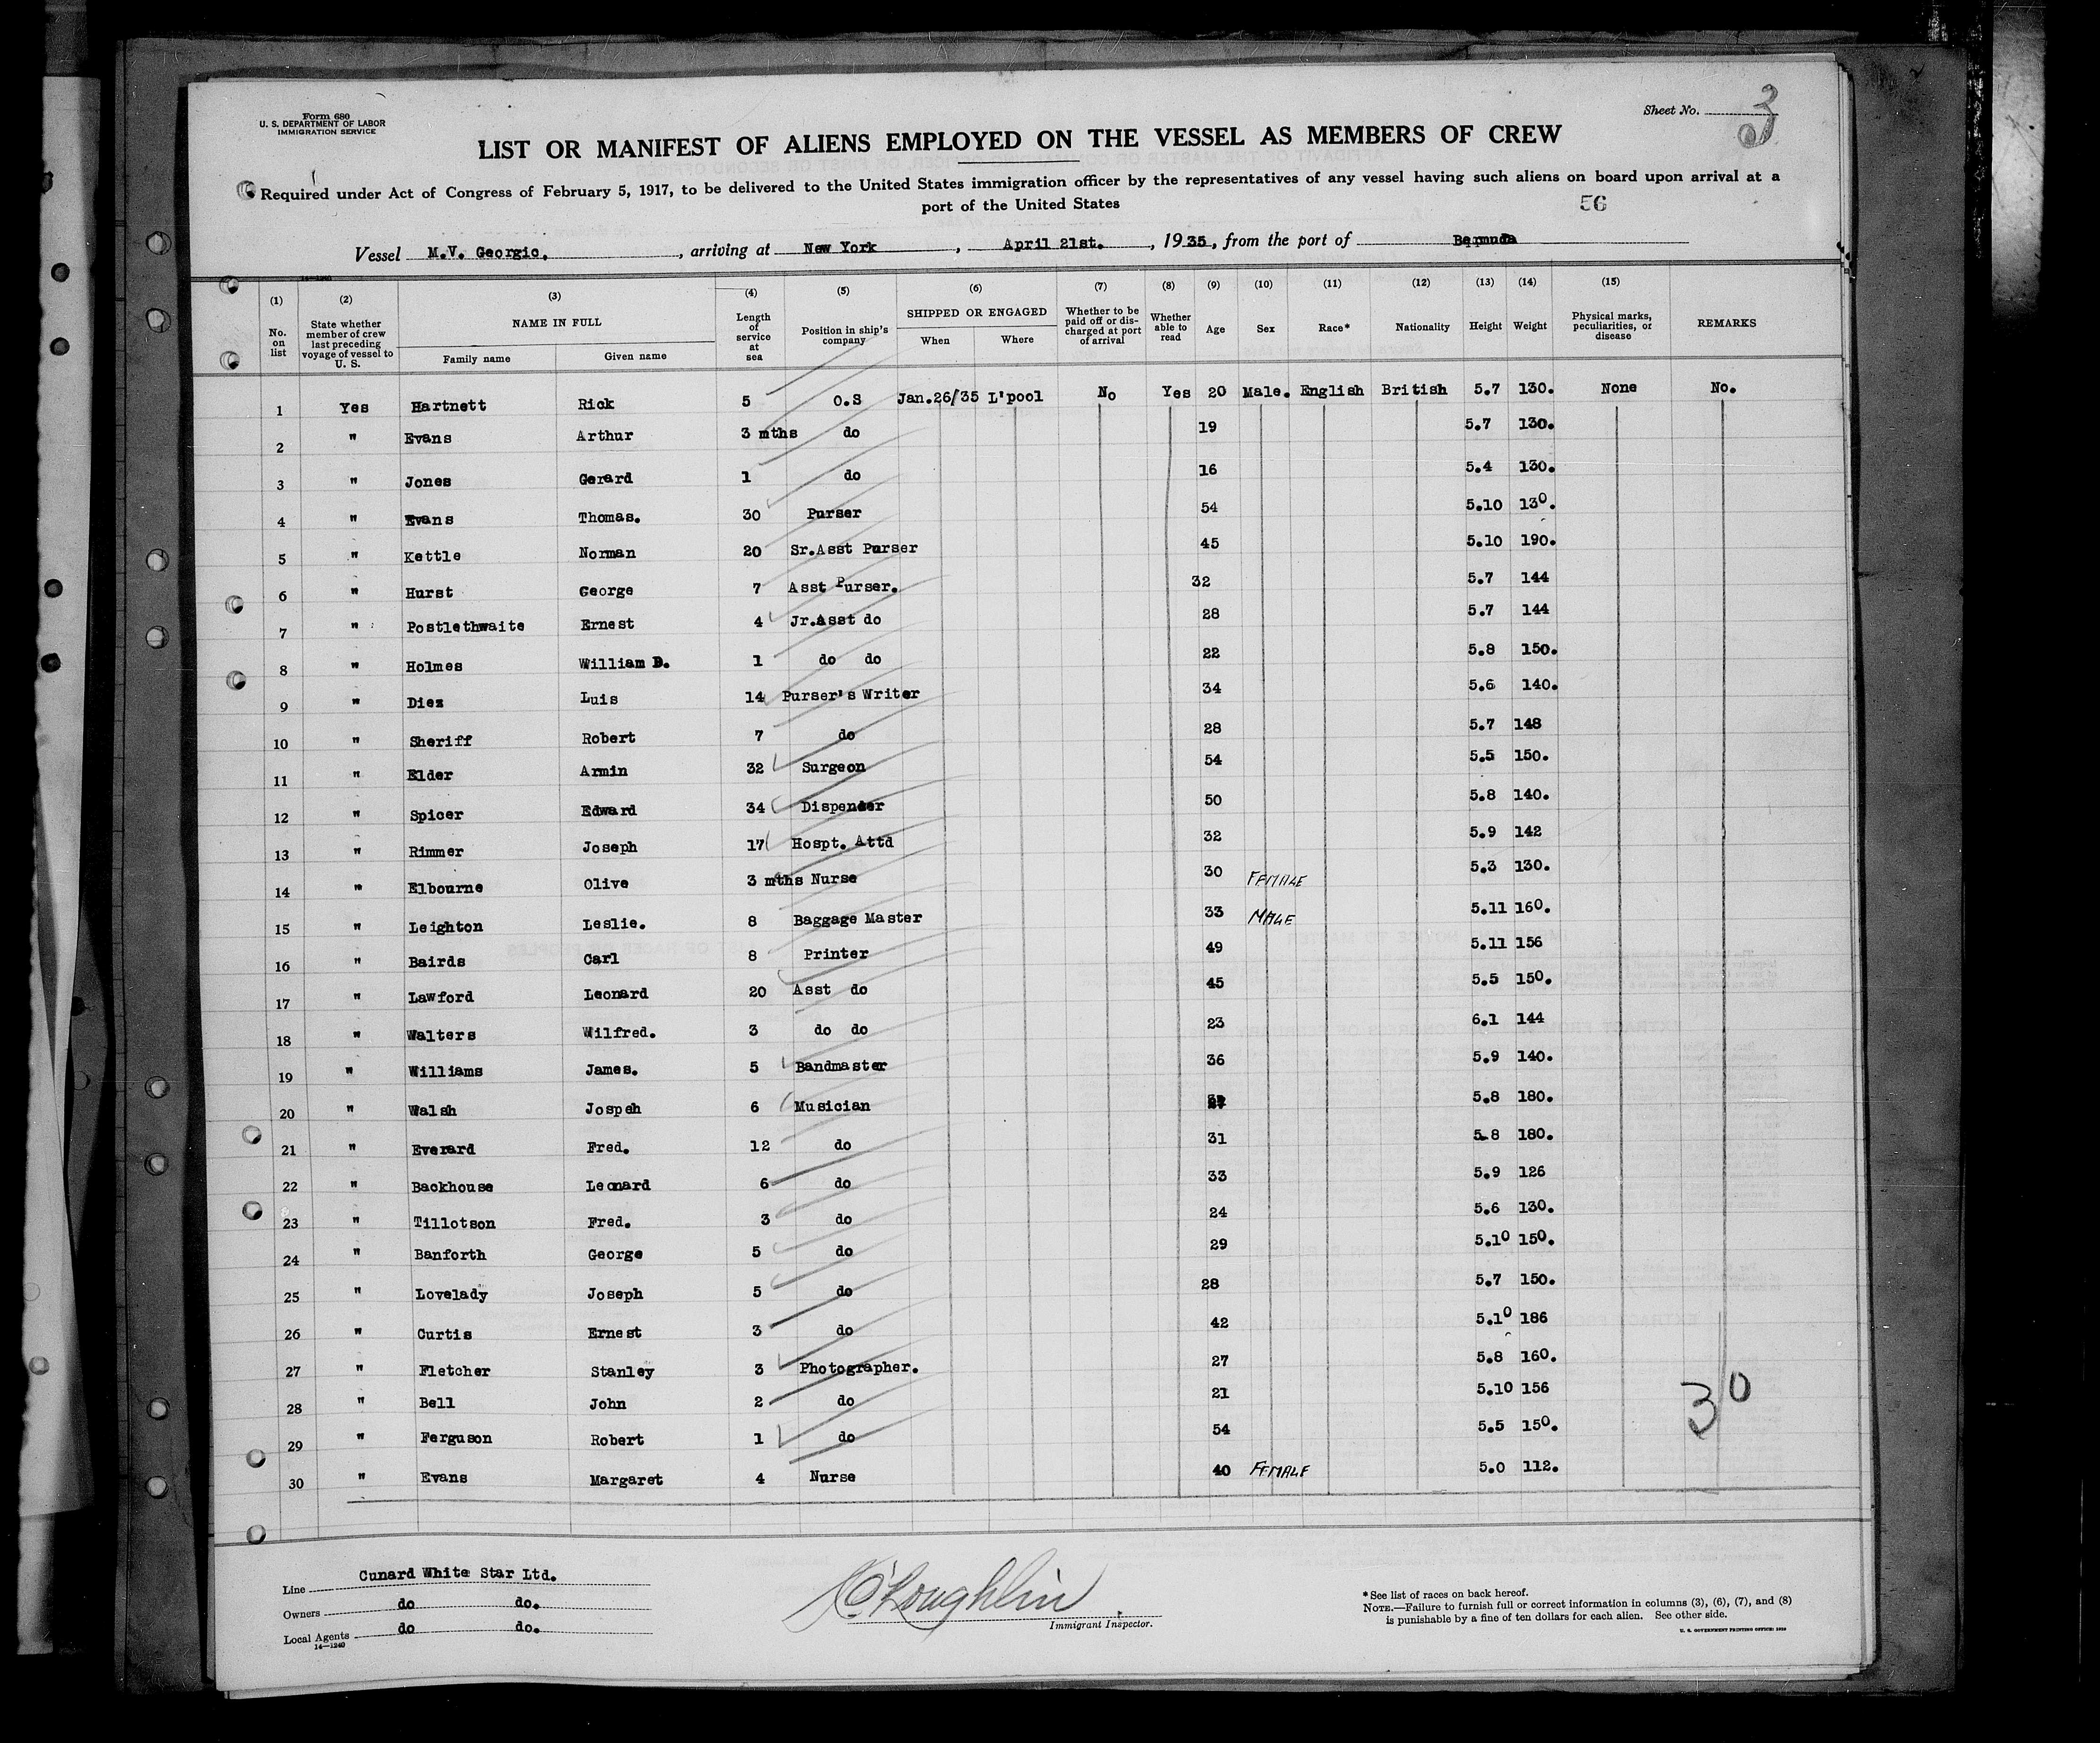 Form 680
U. S. DEPARTMENT OF LABOR
IMMIGRATION SERVICE
Sheet No. 3
LIST OR MANIFEST OF ALIENS EMPLOYED ON THE VESSEL AS MEMBERS OF CREW
Required under Act of Congress of February 5, 1917, to be delivered to the United States immigration officer by the representatives of any vessel having such aliens on board upon arrival at a
port of the United States
56
Vessel M.V. Georgic. , arriving at New York , April 21st. , 1935, from the port of Bermuda
(1) (2) (3) (4) (5) (6) (7) (8) (9) (10) (11) (12) (13) (14) (15)
No. on list State whether member of crew last preceding voyage of vessel to U. S. NAME IN FULL Family name Given name Length of service at sea Position in ship's company SHIPPED OR ENGAGED When Where Whether to be paid off or discharged at port of arrival Whether able to read Age Sex Race* Nationality Height Weight Physical marks, peculiarities, or disease REMARKS
1 Yes Hartnett Rick 5 O.S Jan.26/35 L'pool No Yes 20 Male. English British 5.7 130. None No.
2 " Evans Arthur 3 mths do 19 5.7 130.
3 " Jones Gerard 1 do 16 5.4 130.
4 " Evans Thomas. 30 Purser 54 5.10 130.
5 " Kettle Norman 20 Sr.Asst Purser 45 5.10 190.
6 " Hurst George 7 Asst Purser. 32 5.7 144
7 " Postlethwaite Ernest 4 Jr.Asst do 28 5.7 144
8 " Holmes William D. 1 do do 22 5.8 150.
9 " Diez Luis 14 Purser's Writer 34 5.6 140.
10 " Sheriff Robert 7 do 28 5.7 148
11 " Elder Armin 32 Surgeon 54 5.5 150.
12 " Spicer Edward 34 Dispenser 50 5.8 140.
13 " Rimmer Joseph 17 Hospt. Attd 32 5.9 142
14 " Elbourne Olive 3 mths Nurse 30 FEMALE 5.3 130.
15 " Leighton Leslie. 8 Baggage Master 33 MALE 5.11 160.
16 " Bairds Carl 8 Printer 49 5.11 156
17 " Lawford Leonard 20 Asst do 45 5.5 150.
18 " Walters Wilfred. 3 do do 23 6.1 144
19 " Williams James. 5 Bandmaster 36 5.9 140.
20 " Walsh Jospeh 6 Musician 5.8 180.
21 " Everard Fred. 12 do 31 5.8 180.
22 " Backhouse Leonard 6 do 33 5.9 126
23 " Tillotson Fred. 3 do 24 5.6 130.
24 " Banforth George 5 do 29 5.10 150.
25 " Lovelady Joseph 5 do 28 5.7 150.
26 " Curtis Ernest 3 do 42 5.10 186
27 " Fletcher Stanley 3 Photographer. 27 5.8 160.
28 " Bell John 2 do 21 5.10 156
29 " Ferguson Robert 1 do 54 5.5 150.
30 " Evans Margaret 4 Nurse 40 FEMALE 5.0 112.
30
Line Cunard White Star Ltd.
Owners do do.
Local Agents do do.
14—1240
Immigrant Inspector.
*See list of races on back hereof.
NOTE.—Failure to furnish full or correct information in columns (3), (6), (7), and (8)
is punishable by a fine of ten dollars for each alien. See other side.